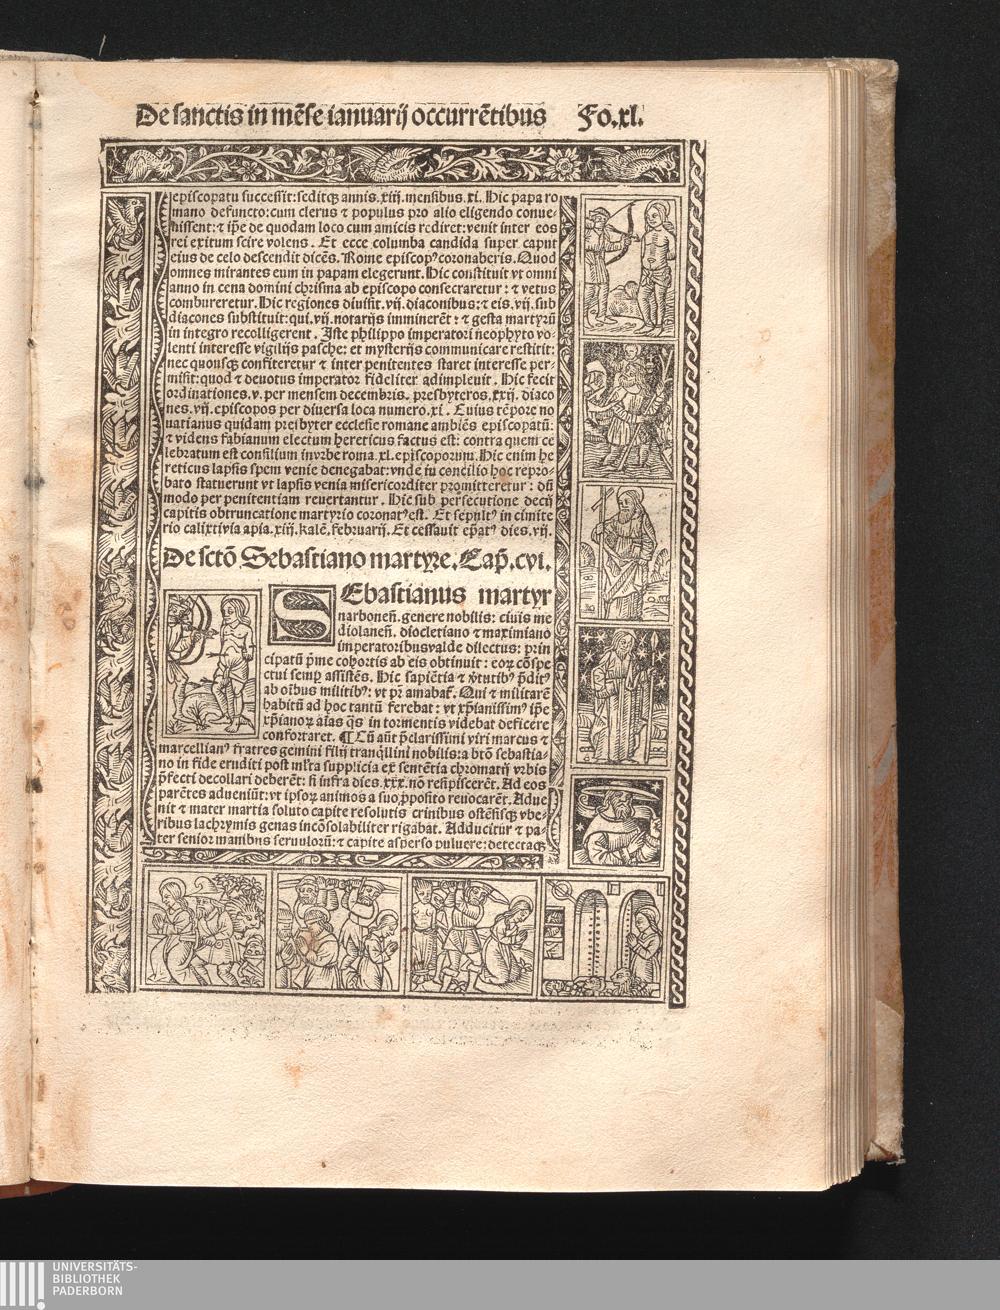 De sanctis in mēse ianuarij occurrētibus Fo.xl.
episcopatu successit: seditqȝ annis.xiij.mensibus.xi. Hic papa ro
mano defuncto: cum clerus ⁊ populus pro alio eligendo conue-
nissent: ⁊ ip̄e de quodam loco cum amicis rediret: venit inter eos
rei exitum scire volens. Et ecce columba candida super caput
eius de celo descendit dicēs. Rome episcopꝰ coronaberis. Quod
omnes mirantes eum in papam elegerunt. Hic constituit vt omni
anno in cena domini chrisma ab episcopo consecraretur: ⁊ vetus
combureretur. Hic regiones diuisit.vij.diaconibus: ⁊ eis.vij.sub
diacones substituit: qui.vij.notarijs imminerēt: ⁊ gesta martyrū
in integro recolligerent. Iste philippo imperatori neophyto vo-
lenti interesse vigilijs pasche: et mysterijs communicare restitit:
nec quousqȝ confiteretur ⁊ inter penitentes staret interesse per-
misit: quod ⁊ deuotus imperator fideliter adimpleuit. Hic fecit
ordinationes.v.per mensem decembris. presbyteros.xxij.diaco
nes.vij.episcopos per diuersa loca numero.xi. Cuius tēpore no
uatianus quidam presbyter ecclesie romane ambiēs episcopatū:
⁊ videns fabianum electum hereticus factus est: contra quem ce
lebratum est consilium in vrbe roma.xl.ep̄iscoporum. Hic enim he
reticus lapsis spem venie denegabat: vnde in concilio hoc repro-
bato statuerunt vt lapsis venia misericorditer promitteretur: dū
modo per penitentiam reuertantur. Hic sub persecutione decij
capitis obtruncatione martyrio coronatꝰ est. Et sepultꝰ in cimite
rio calixti via apia.xiij.kalē.februarij. Et cessauit ep̄atꝰ dies.vij.
De sctō Sebastiano martyre. Cap̄.cvi.
SEbastianus martyr
narboneñ. genere nobilis: ciuis me
diolaneñ. diocletiano ⁊ maximiano
imperatoribus valde dilectus: prin
cipatū p̄me cohortis ab eis obtinuit: eoꝝ cōspe
ctui semp̱ assistēs. Hic sapiētia ⁊ v̄tutibꝰ p̄ditꝰ
ab oībus militibꝰ: vt pr̄ amabat̄. Qui ⁊ militarē
habitū ad hoc tantū ferebat: vt xp̄ianissimꝰ ip̄e
xp̄ianoꝝ aīas q̄s in tormentis videbat deficere
confortaret. ¶ Cū aūt p̄clarissimi viri marcus ⁊
marcellianꝰ fratres gemini filij tranq̇llini nobilis: a btō sebastia-
no in fide eruditi post ml̄ta supplicia ex sentētia chromatij vrbis
p̄fecti decollari deberēt: si infra dies.xxx.nō resipiscerēt. Ad eos
parētes adueniūt: vt ipsoꝝ animos a suo ꝓposito reuocarēt. Adue
nit ⁊ mater martia soluto capite resolutis crinibus ostēsisqȝ vbe-
ribus lachrymis genas incōsolabiliter rigabat. Adducitur ⁊ pa-
ter senior manibus seruulorū: ⁊ capite asperso puluere: detectaqȝ
UNIVERSITÄTS-
BIBLIOTHEK
PADERBORN